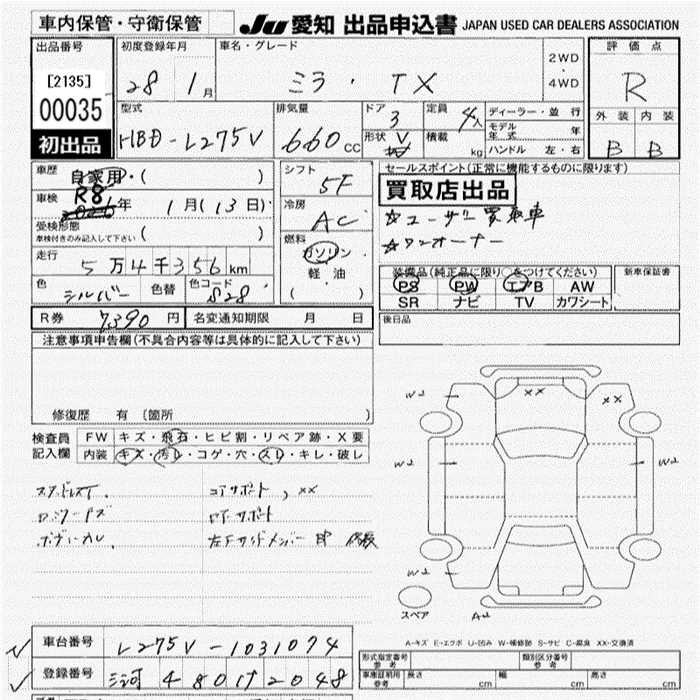 車内保管・守衛保管
JU 愛知 出品申込書 JAPAN USED CAR DEALERS ASSOCIATION
出品番号
[2135]
00035
初出品
初度登録年月
28 1月
車名・グレード
ミラ・TX
2WD
・
4WD
評価点
R
外装 内装
B B
型式
HBD-L275V
排気量
660 cc
ドア
3
定員
4人
形状
V
積載
kg
ディーラー・並行
モデル年式 年
ハンドル 左・右
車歴
自家用・( )
車検
R8年 1月(13日)
受検形態
車検付きのみ記入して下さい ( )
走行
5万4千356km
色
シルバー
色替
色コード
S28
シフト
5F
冷房
AC
燃料
ガソリン
軽油
( )
セールスポイント(正常に機能するものに限ります)
買取店出品
☆ユーザー買取車
☆ワンオーナー
装備品(純正品に限り○をつけてください)
PS PW エアB AW
SR ナビ TV カワシート
新車保証書
後日品
R券 7390円
名変通知期限 月 日
注意事項申告欄(不具合内容等は具体的に記入して下さい)
修復歴 有〔箇所 〕
検査員記入欄
FW キズ・飛石・ヒビ割・リペア跡・X要
内装 キズ・汚レ・コゲ・穴・スレ・キレ・破レ
コアサポート、XX
ロアサポート
W2
XX
XX
W2
W2
W2
A2
スペア
A-キズ E-エクボ U-凹み W-補修跡 S-サビ C-腐食 XX-交換済
車台番号
L275V-1031074
登録番号
三河 480 け 2048
形式指定番号
参考
類別区分番号
参考
車庫証明用
参考
長さ cm
幅 cm
高さ cm